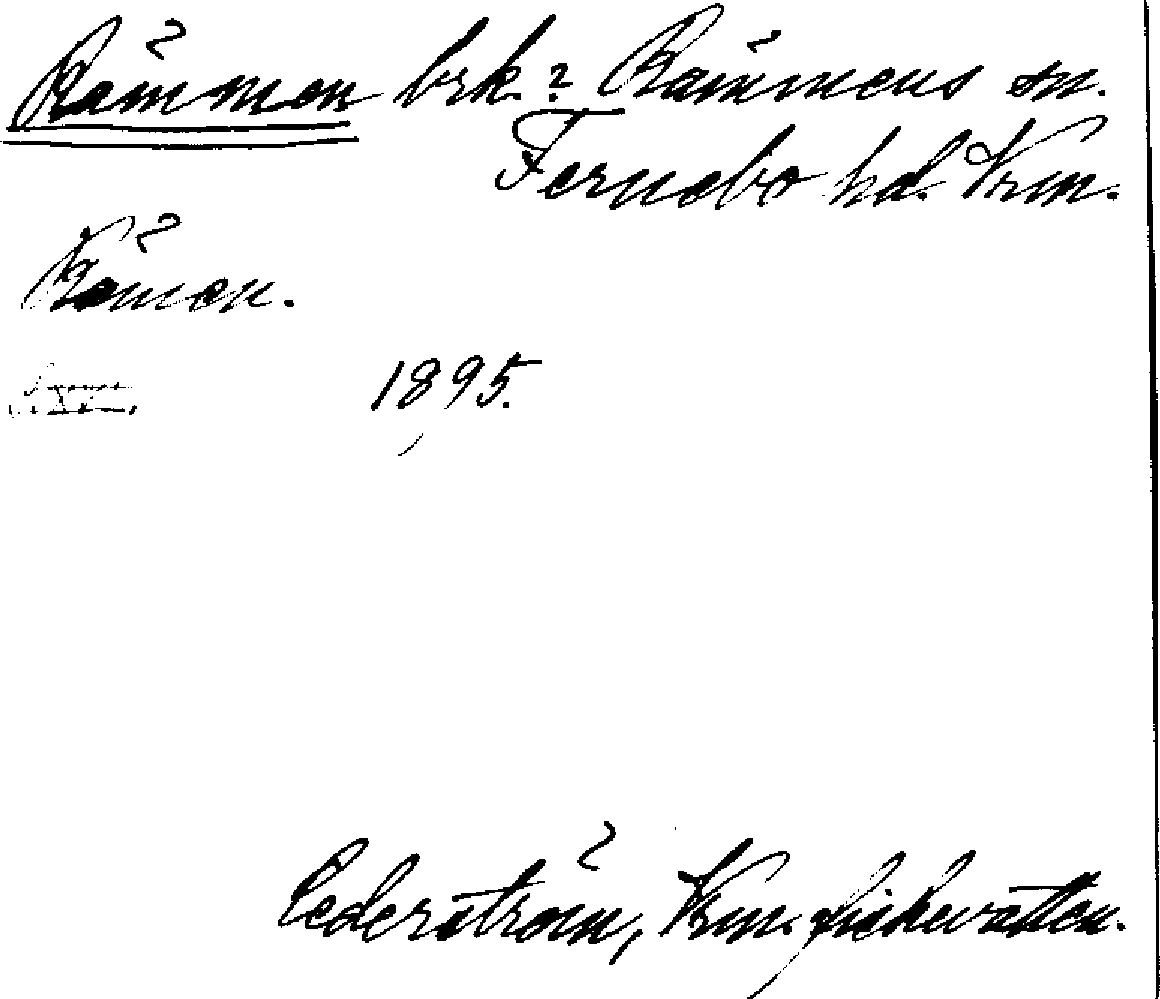 Rämmen brk.? Rämmens sn.
Fernebo hd. Vrm.
Rämen.
1895.
Cederström, Vrm. fiskevatten.